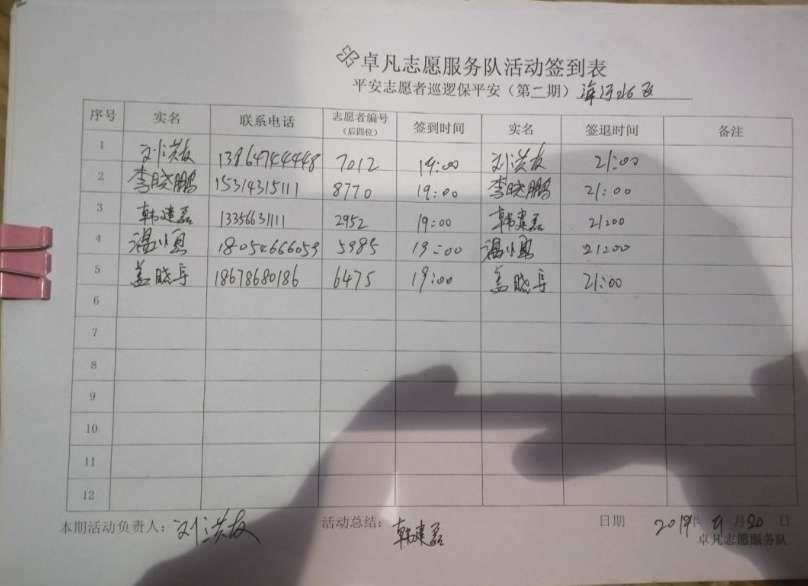 卓凡志愿服务队活动签到表
平安志愿者巡逻保平安（第二期）
序号 实名 联系电话 志愿者编号（后四位） 签到时间 实名 签退时间 备注
1 刘洪友 13964744448 7012 19:00 刘洪友 21:00
2 李晓鹏 15314315111 8770 19:00 李晓鹏 21:00
3 韩建磊 13356631111 2952 19:00 韩建磊 21:00
4 18054666059 5985 19:00 21:00
5 姜晓 18678680186 6475 19:00 姜晓 21:00
6
7
8
9
10
11
12
本期活动负责人：刘洪友 活动总结：韩建磊 日期 2019年 月20日
卓凡志愿服务队